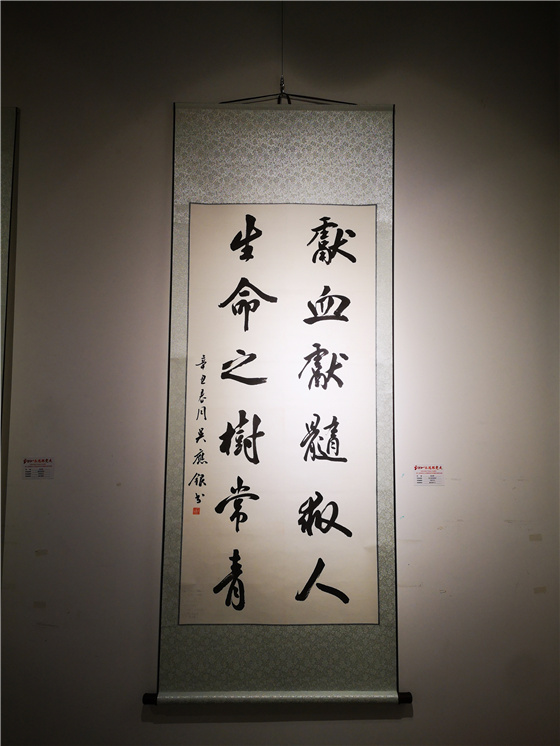 獻血獻髓救人
生命之樹常青
辛丑春月吳應銀書